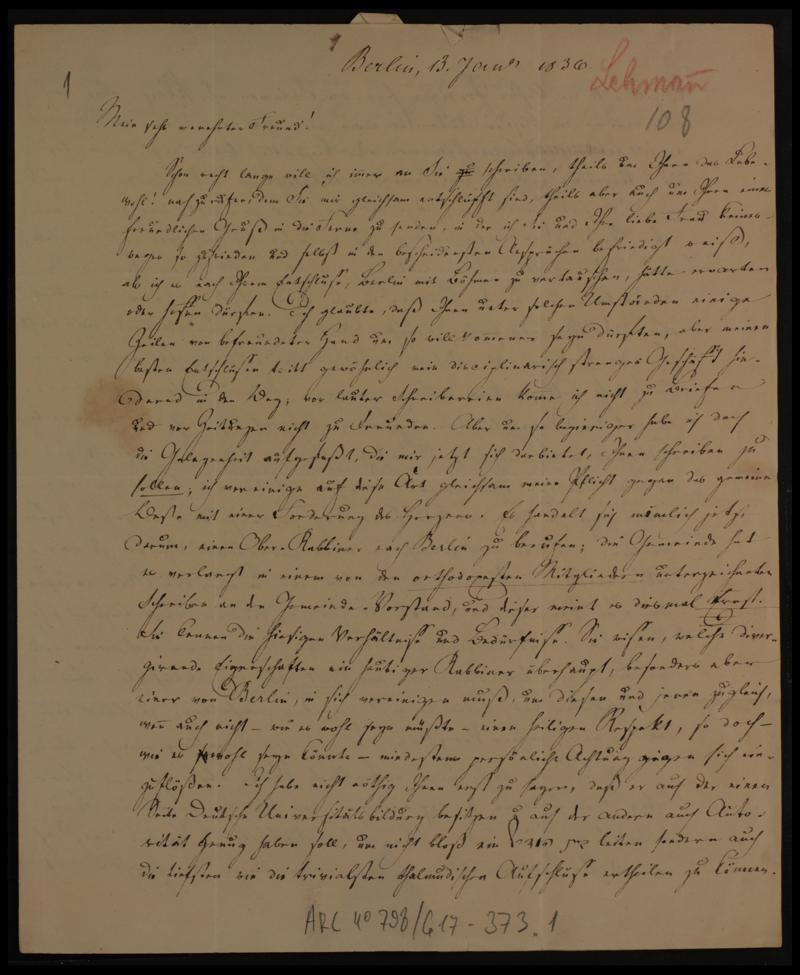 1
1
Berlin, 13. Jan. 1836
Lehmann
108
Mein sehr verehrter Freund!
Schon recht lange will ich immer an Sie zu schreiben, theils um Ihnen das Lebe-
wohl! nachzurufen, denn Sie mir gleichsam entschlüpft sind, theils aber auch um Ihnen einen
freundlichen Gruß in die Ferne zu senden, in der ich Sie und Ihre liebe Frau keines-
weges so zufrieden und selbst in den bescheidensten Ansprüchen befriedigt weiß,
als ich es nach Ihrem Entschlusse, Berlin mit Böhmen zu vertauschen, hätte erwarten
oder hoffen dürfen. Ich glaubte, daß Ihnen unter solchen Umständen einige
Zeilen von befreundeter Hand um so willkommener seyn dürften, aber meinen
besten Entschlüssen tritt gewöhnlich mein disciplinarisch strenges Geschäft hin-
dernd in den Weg; vor lauter Schreibereien komme ich nicht zu Briefen
und vor Zeitungen nicht zu Freunden. Aber um so begieriger habe ich doch
die Gelegenheit aufgefaßt, die mir jetzt sich darbietet, Ihnen schreiben zu
sollen; ich vereinige auf diese Art gleichsam meine Pflicht gegen das gemeine
Beste mit einer Forderung des Herzens. Es handelt sich nämlich jetzt
darum, einen Ober-Rabbiner nach Berlin zu berufen; die Gemeinde hat
es verlangt in einem von den orthodoxesten Mitgliedern unterzeichneten
Schreiben an den Gemeinde-Vorstand, und dieser meint es diesmal Ernst.
Sie kennen die hiesigen Verhältnisse und Bedürfnisse. Sie wissen, welche diver-
girende Eigenschaften ein heutiger Rabbiner überhaupt, besonders aber
einer von Berlin, in sich vereinigen muß, um diesen und jenen zugleich,
wenn auch nicht – wie es wohl seyn müßte – einen heiligen Respekt, so doch –
wie es wohl seyn könnte – mindestens persönliche Achtung gegen sich ein-
zuflößen. Ich habe nicht nöthig Ihnen erst zu sagen, daß er auf der einen
Seite Deutsche Universitätsbildung besitzen u auf der andern auch Auto-
rität genug haben soll, um nicht bloß ein leiten sondern auch
die tiefsten wie die trivialsten thalmudischen Aufschlüsse ertheilen zu können.
ARC 4o 798/G17-373.1